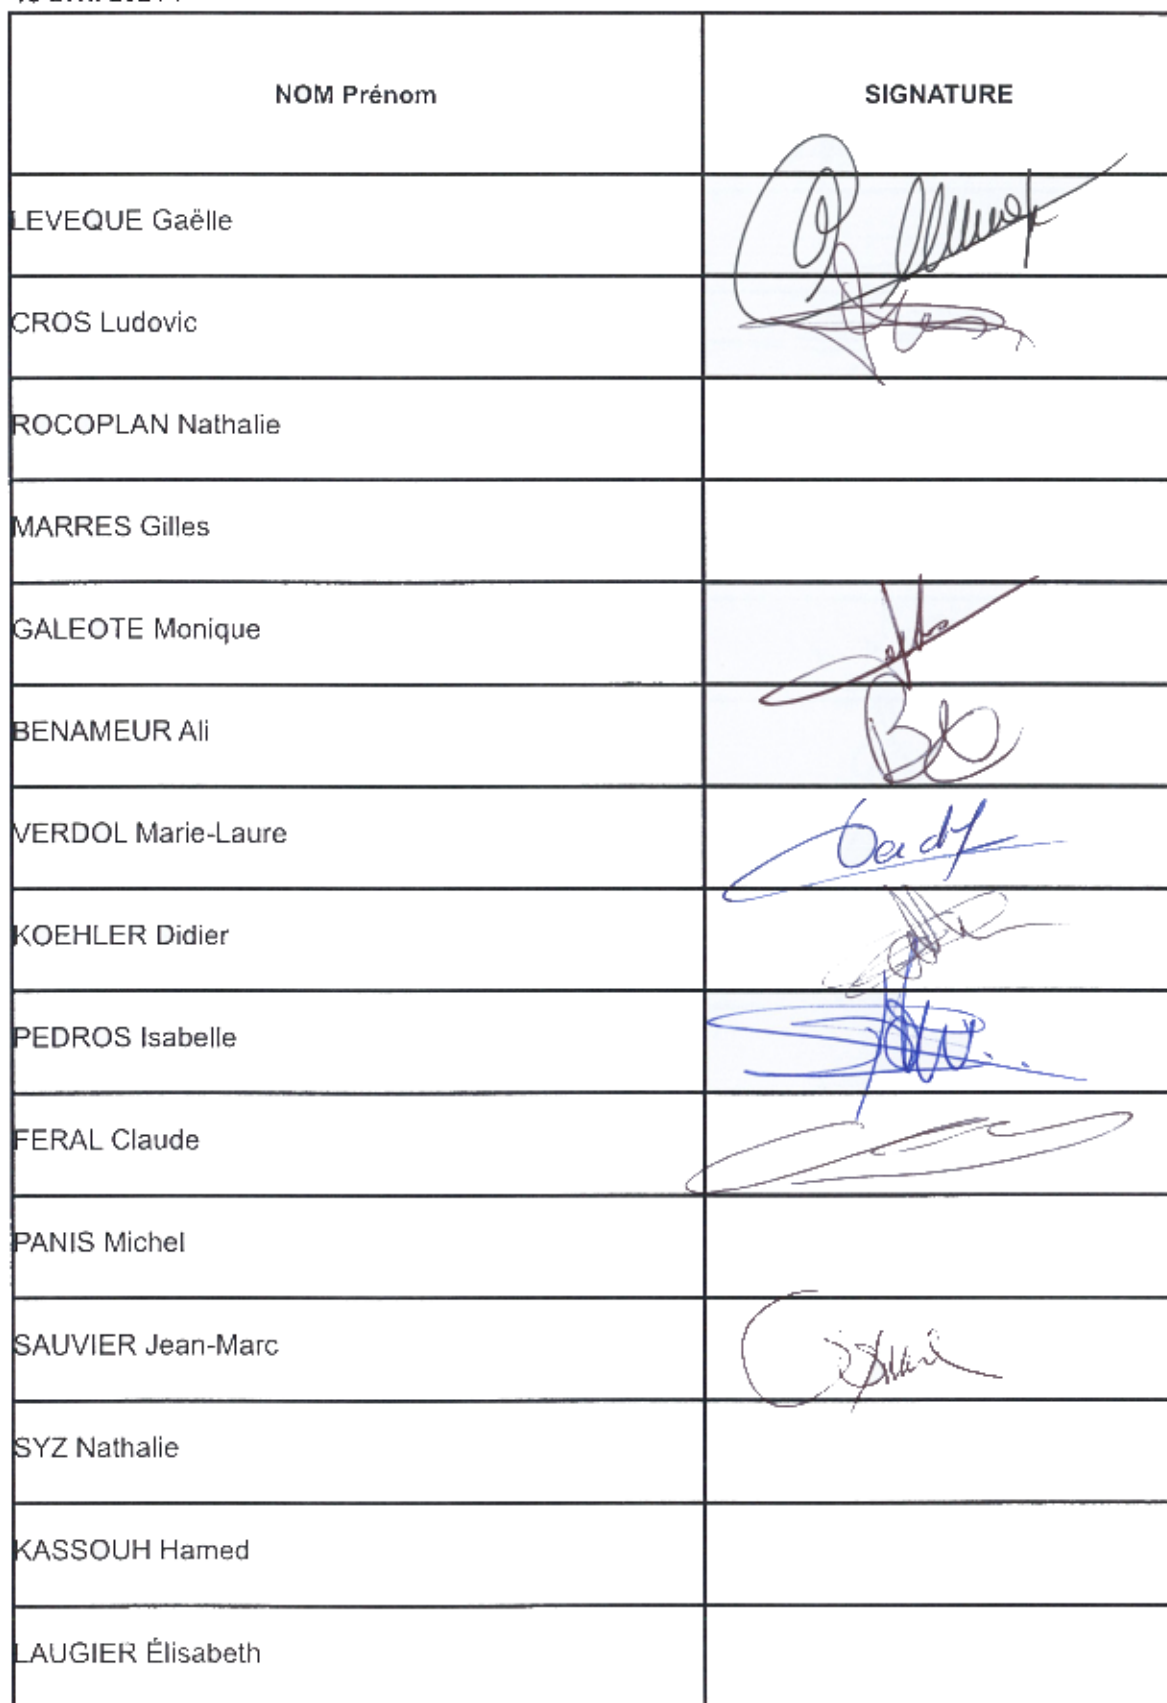 NOM Prénom
SIGNATURE
LEVEQUE Gaëlle
CROS Ludovic
ROCOPLAN Nathalie
MARRES Gilles
GALEOTE Monique
BENAMEUR Ali
VERDOL Marie-Laure
KOEHLER Didier
PEDROS Isabelle
FERAL Claude
PANIS Michel
SAUVIER Jean-Marc
SYZ Nathalie
KASSOUH Hamed
LAUGIER Élisabeth